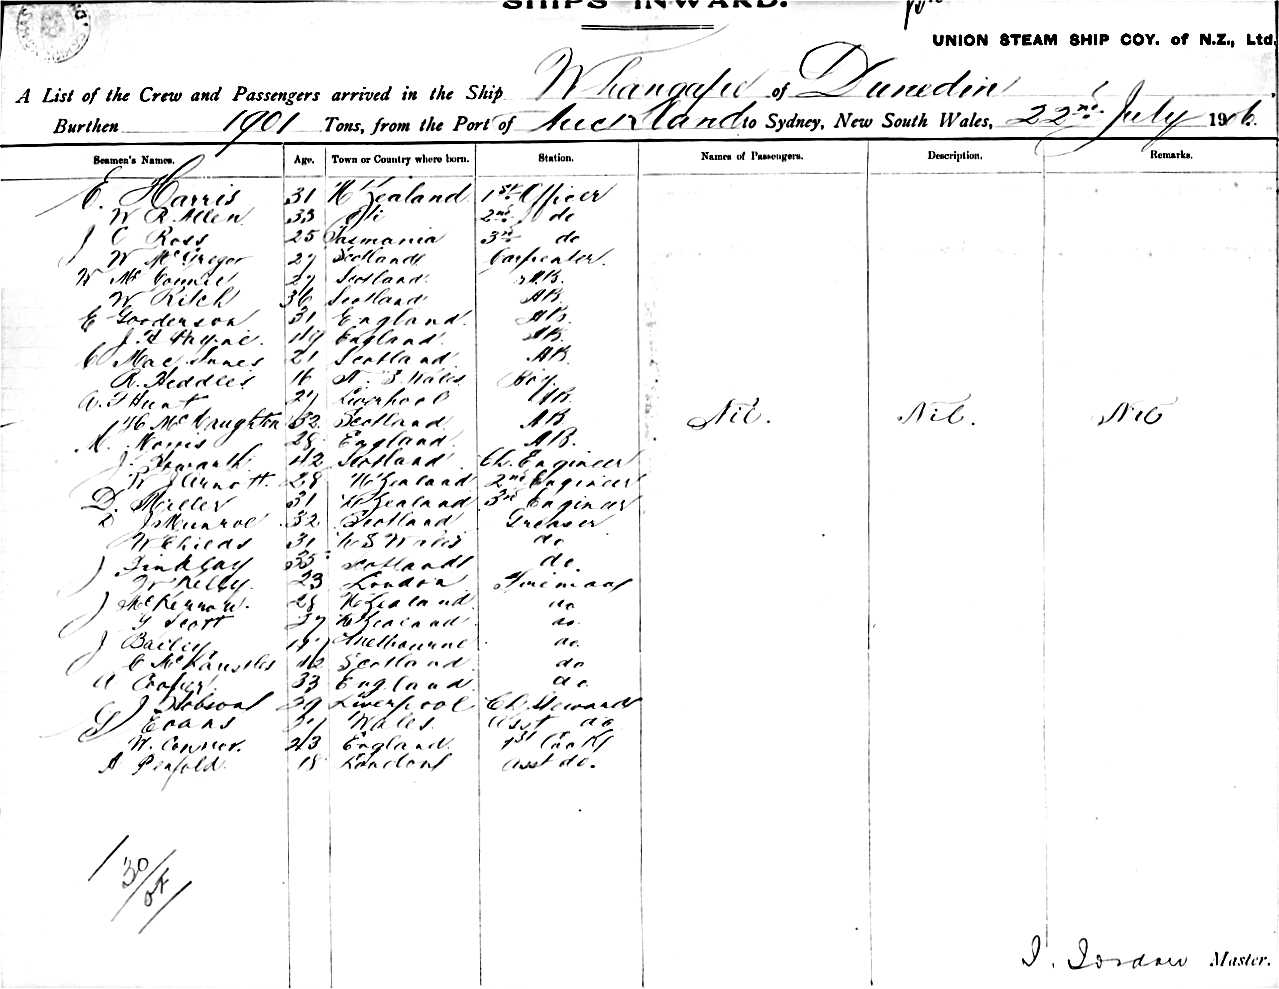 SHIPS INWARD.
UNION STEAM SHIP COY. of N.Z., Ltd.
A List of the Crew and Passengers arrived in the Ship Whangape of Dunedin
Burthen 1901 Tons, from the Port of Auckland to Sydney, New South Wales, 22nd July 1906.
Seamen's Names. Age. Town or Country where born. Station. Names of Passengers. Description. Remarks.
E. Harris 31 N Zealand 1st Officer
W R Allen 33 2nd do
J C Ross 25 Tasmania 3rd do
W McGregor 27 Scotland Carpenter.
W Mc 27 Scotland AB.
W Ritch 36 Scotland AB
E Gooderson 31 England AB
J. England. AB.
C MacInnes 21 Scotland AB
R. Heddles 16 N. S Wales Boy.
A. J Hunt 27 Liverpool AB.
McNaughton 32 Scotland AB Nil. Nil. Nil
Morris 28 England AB.
J. 42 Scotland Ch. Engineer
W J Arnott. 28 N Zealand 2nd Engineer
D. Miller 31 N Zealand 3rd Engineer
D J Munroe 32 Scotland Greaser
W Childs 31 N S Wales do
J Finklay 35 Scotland do.
W Kelly. 23 London Fireman
J McKennon. 28 N Zealand do
Scott 37 N Zealand do.
J Bailey Melbourne do.
C 42 Scotland do
A Cooper. 33 England do
J Hobson 29 Liverpool Ch. Steward
G Evans Wales. Asst do
W. Connor. 23 England. 1st Cook
A Penfold. 18 London Asst do.
30
I. Jordan Master.